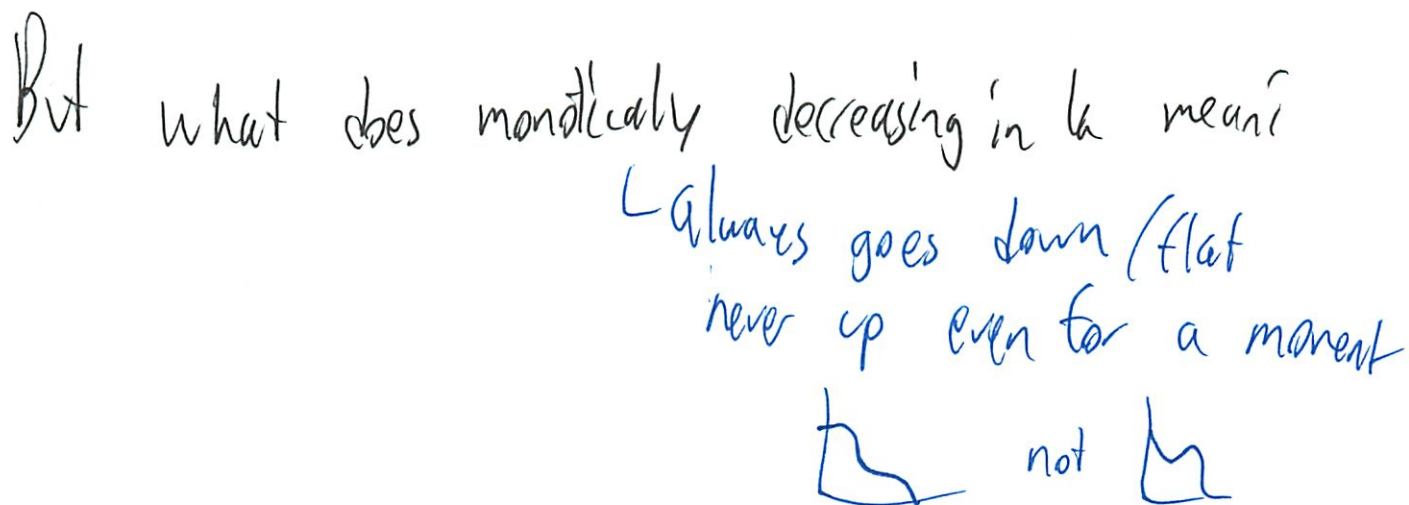 But what does monotically decreasing in k mean?
always goes down/flat
never up even for a moment
not